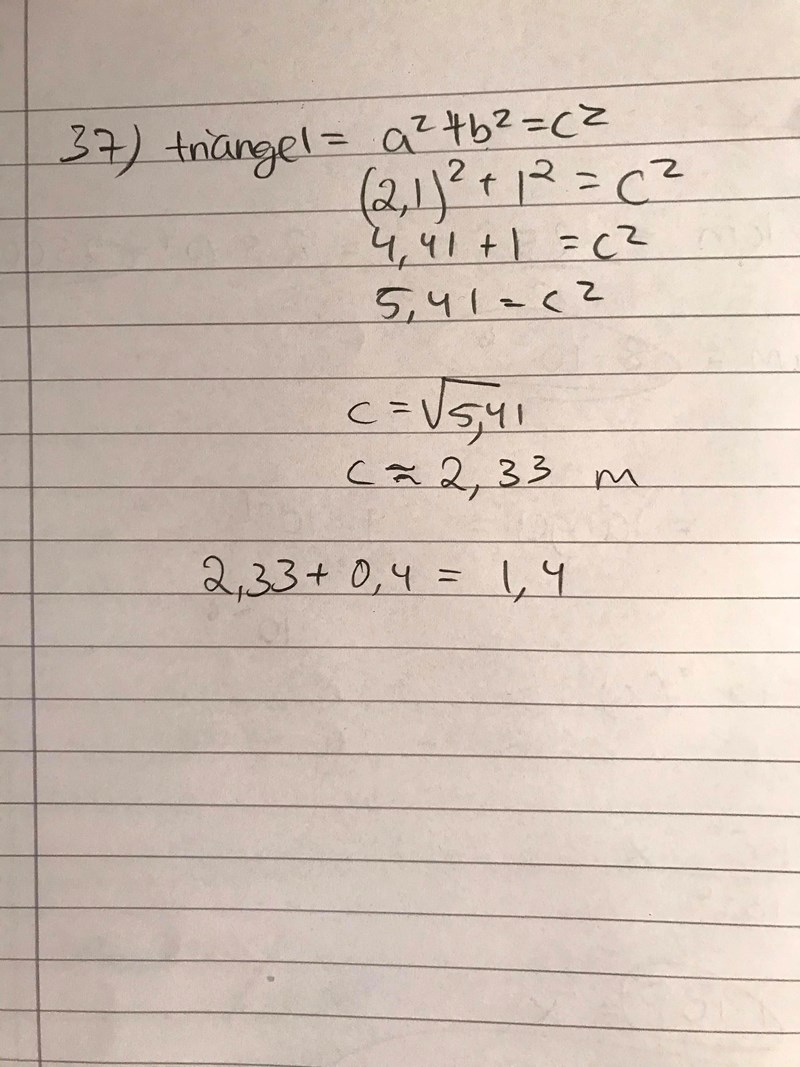 37) triangel = a² + b² = c²
(2,1)² + 1² = c²
4,41 + 1 = c²
5,41 = c²
c = √5,41
c ≈ 2,33 m
2,33 + 0,4 = 1,4